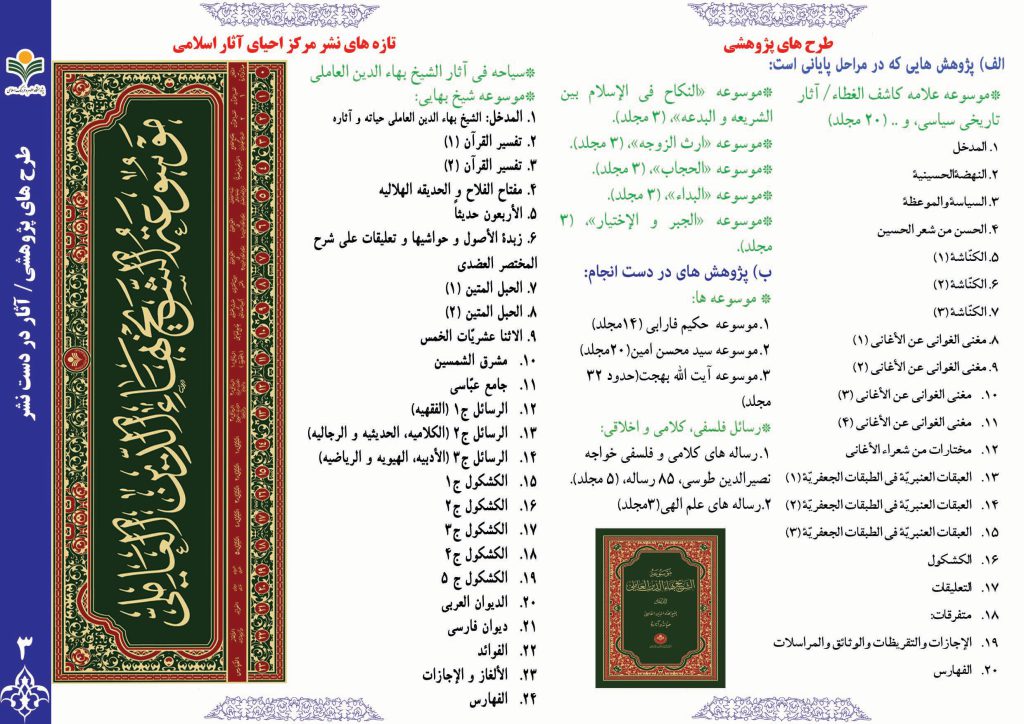 طرح های پژوهشی
الف) پژوهش هایی که در مراحل پایانی است:
*موسوعه علامه کاشف الغطاء/ آثار
تاریخی سیاسی، و .. (۲۰ مجلد)
۱. المدخل
۲. النهضةالحسینیة
۳. السیاسةوالموعظة
۴. الحسن من شعر الحسین
۵. الکنّاشة (۱)
۶. الکنّاشة (۲)
۷. الکنّاشة (۳)
۸. مغنی الغوانی عن الأغانی (۱)
۹. مغنی الغوانی عن الأغانی (۲)
۱۰. مغنی الغوانی عن الأغانی (۳)
۱۱. مغنی الغوانی عن الأغانی (۴)
۱۲. مختارات من شعراء الأغانی
۱۳. العبقات العنبریّة فی الطبقات الجعفریّة (۱)
۱۴. العبقات العنبریّة فی الطبقات الجعفریّة (۲)
۱۵. العبقات العنبریّة فی الطبقات الجعفریّة (۳)
۱۶. الکشکول
۱۷. التعلیقات
۱۸. متفرقات:
۱۹. الإجازات والتقریظات والوثائق والمراسلات
۲۰. الفهارس
*موسوعه «النکاح فی الإسلام بین
الشریعه و البدعه»، (۳ مجلد).
*موسوعه «ارث الزوجه»، (۳ مجلد).
*موسوعه «الحجاب»، (۳ مجلد).
*موسوعه «البداء»، (۳ مجلد).
*موسوعه «الجبر و الإختیار»، (۳
مجلد).
ب) پژوهش های در دست انجام:
* موسوعه ها:
۱.موسوعه حکیم فارابی (۱۴مجلد)
۲.موسوعه سید محسن امین(۲۰مجلد)
۳.موسوعه آیت الله بهجت(حدود ۳۲
مجلد)
*رسائل فلسفی، کلامی و اخلاقی:
۱.رساله های کلامی و فلسفی خواجه
نصیرالدین طوسی، ۸۵ رساله، (۵ مجلد).
۲.رساله های علم الهی(۳مجلد)
موسوعة
الشیخ بهاء الدین العاملی
تازه های نشر مرکز احیای آثار اسلامی
*سیاحه فی آثار الشیخ بهاء الدین العاملی
*موسوعه شیخ بهایی:
۱. المدخل: الشیخ بهاء الدین العاملی حیاته و آثاره
۲. تفسیر القرآن (۱)
۳. تفسیر القرآن (۲)
۴. مفتاح الفلاح و الحدیقه الهلالیه
۵. الأربعون حدیثاً
۶. زبدة الأصول و حواشیها و تعلیقات علی شرح
المختصر العضدی
۷. الحبل المتین (۱)
۸. الحبل المتین (۲)
۹. الاثنا عشریّات الخمس
۱۰. مشرق الشمسین
۱۱. جامع عبّاسی
۱۲. الرسائل ج۱ (الفقهیه)
۱۳. الرسائل ج۲ (الکلامیه، الحدیثیه و الرجالیه)
۱۴. الرسائل ج۳ (الأدبیه، الهیویه و الریاضیه)
۱۵. الکشکول ج۱
۱۶. الکشکول ج۲
۱۷. الکشکول ج۳
۱۸. الکشکول ج۴
۱۹. الکشکول ج ۵
۲۰. الدیوان العربی
۲۱. دیوان فارسی
۲۲. الفوائد
۲۳. الألغاز و الإجازات
۲۴. الفهارس
موسوعة الشیخ بهاء الدین العاملی
طرح های پژوهشی/ آثار در دست نشر
۳